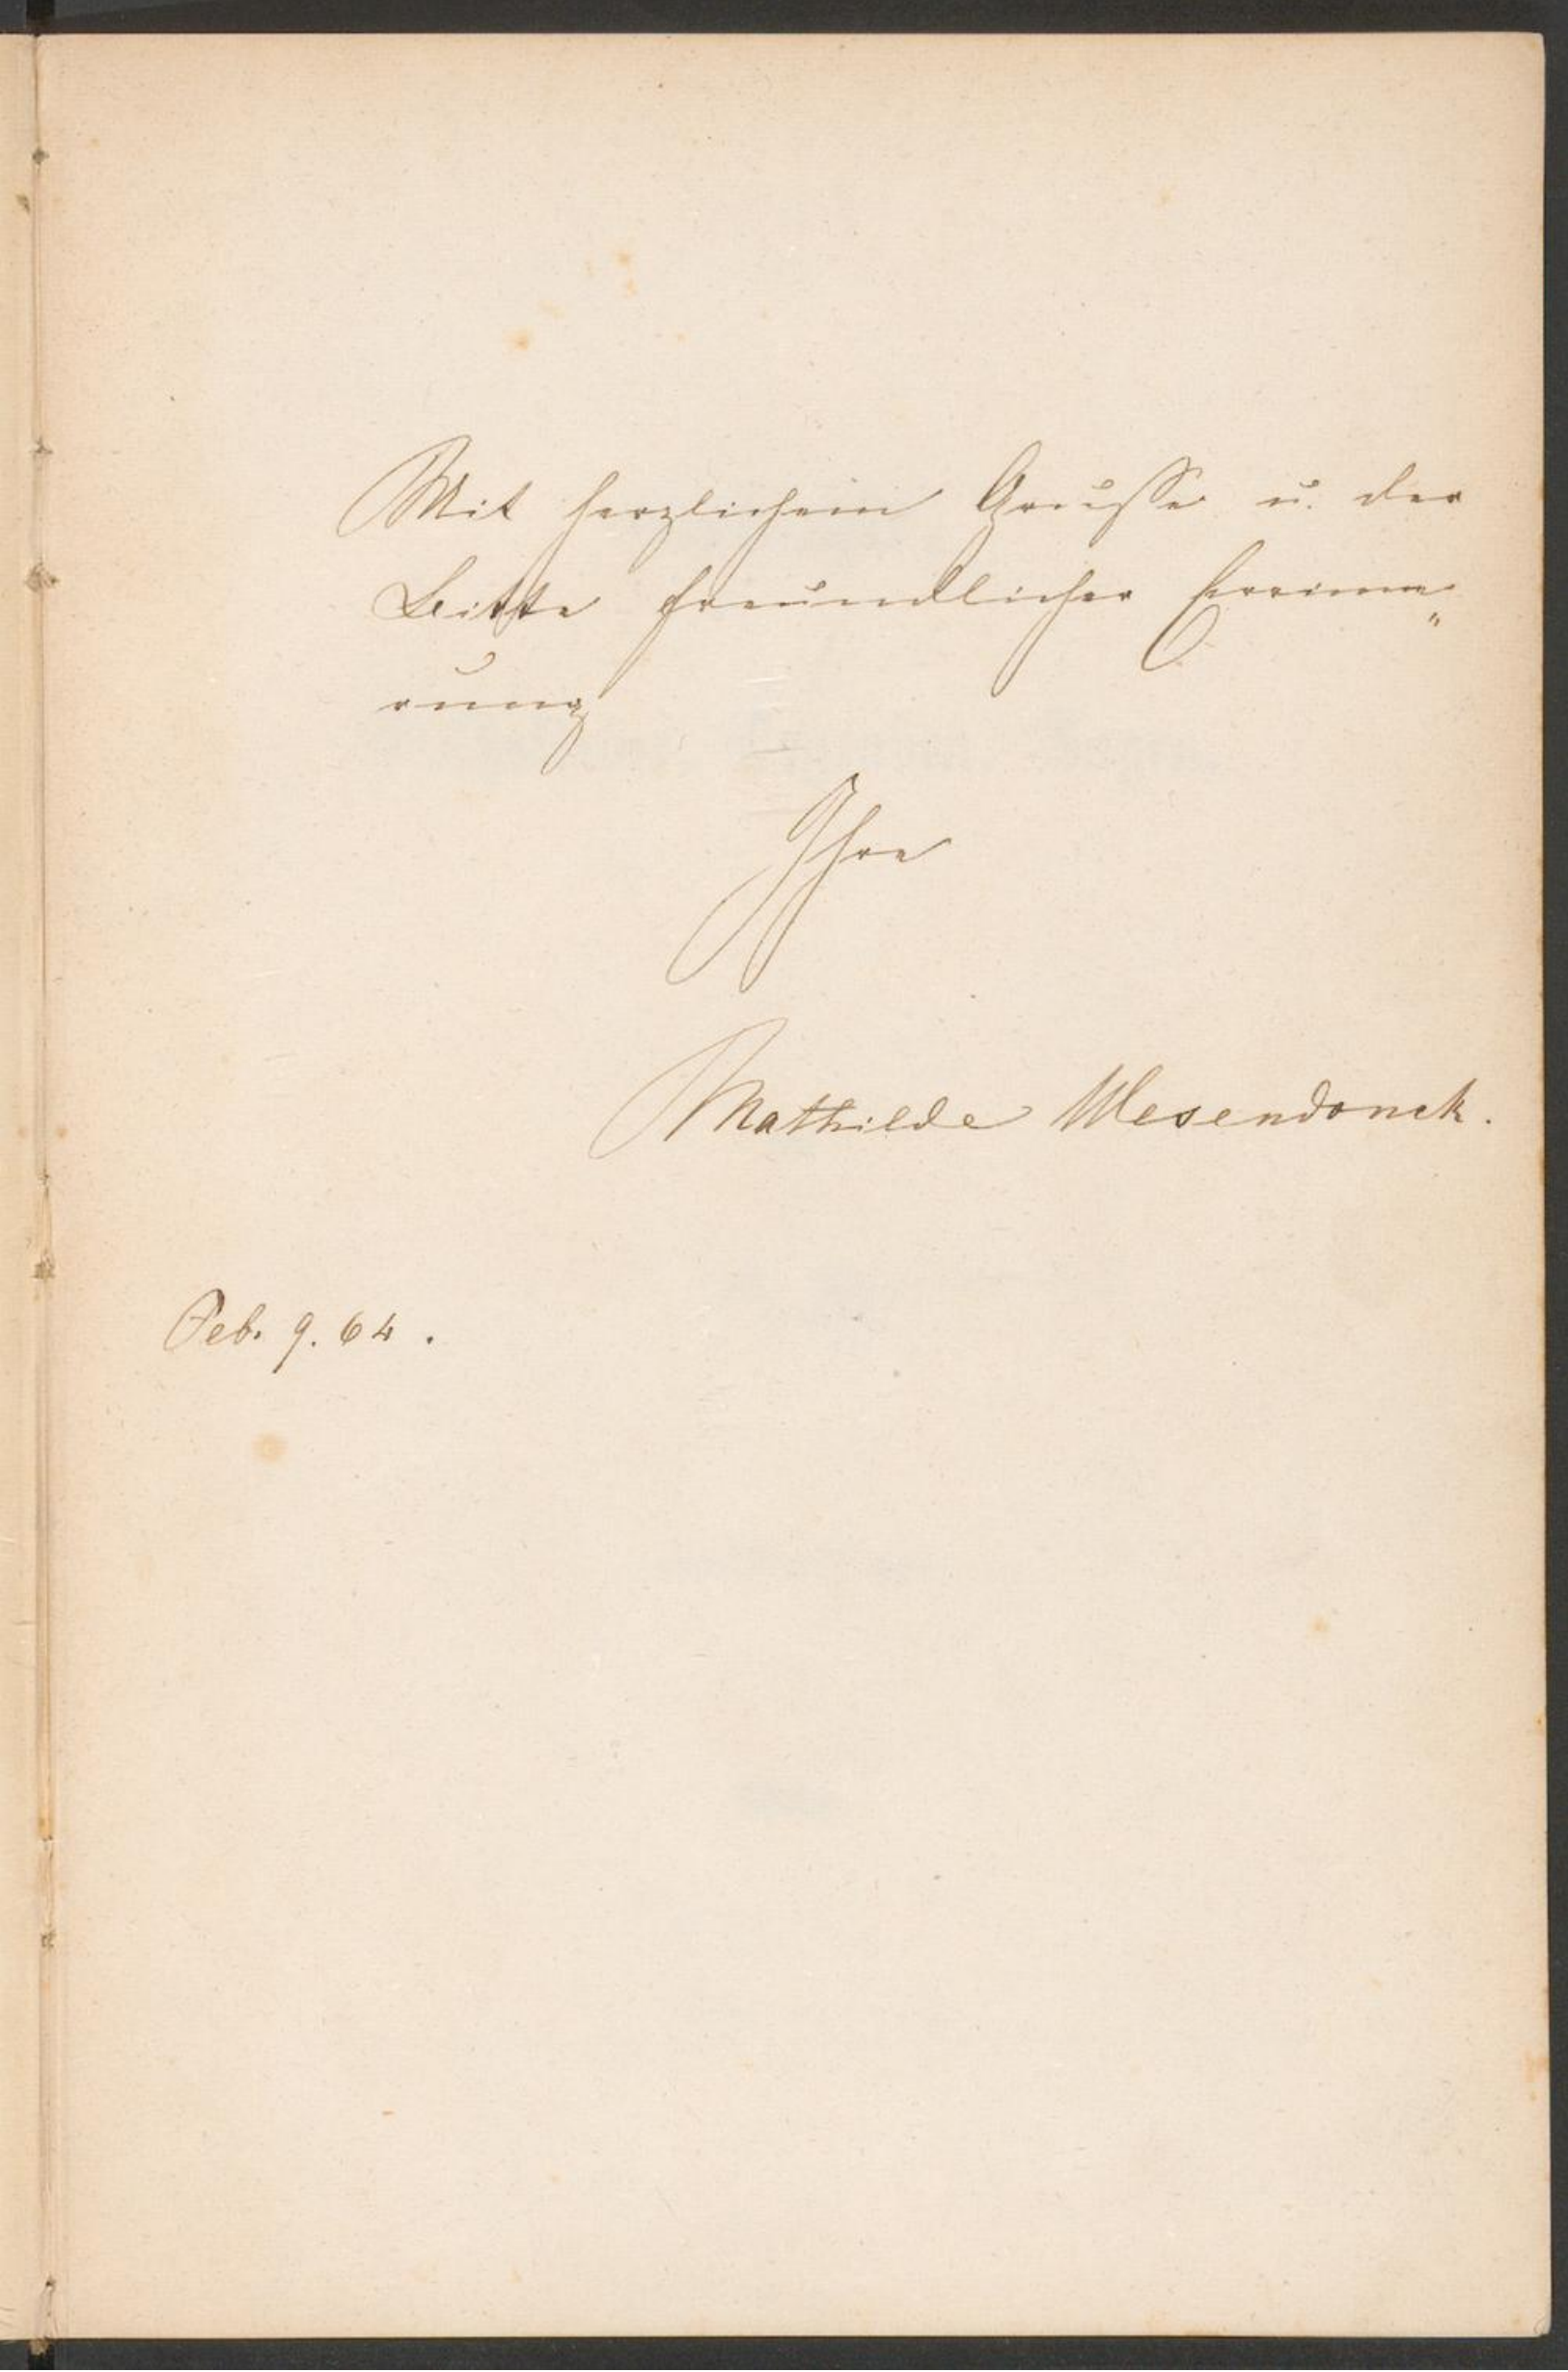 Mit herzlichem Grusse u. der
Bitte freundlicher Erinne„
rung
Ihre
Mathilde Wesendonck.
Feb. 9. 64.